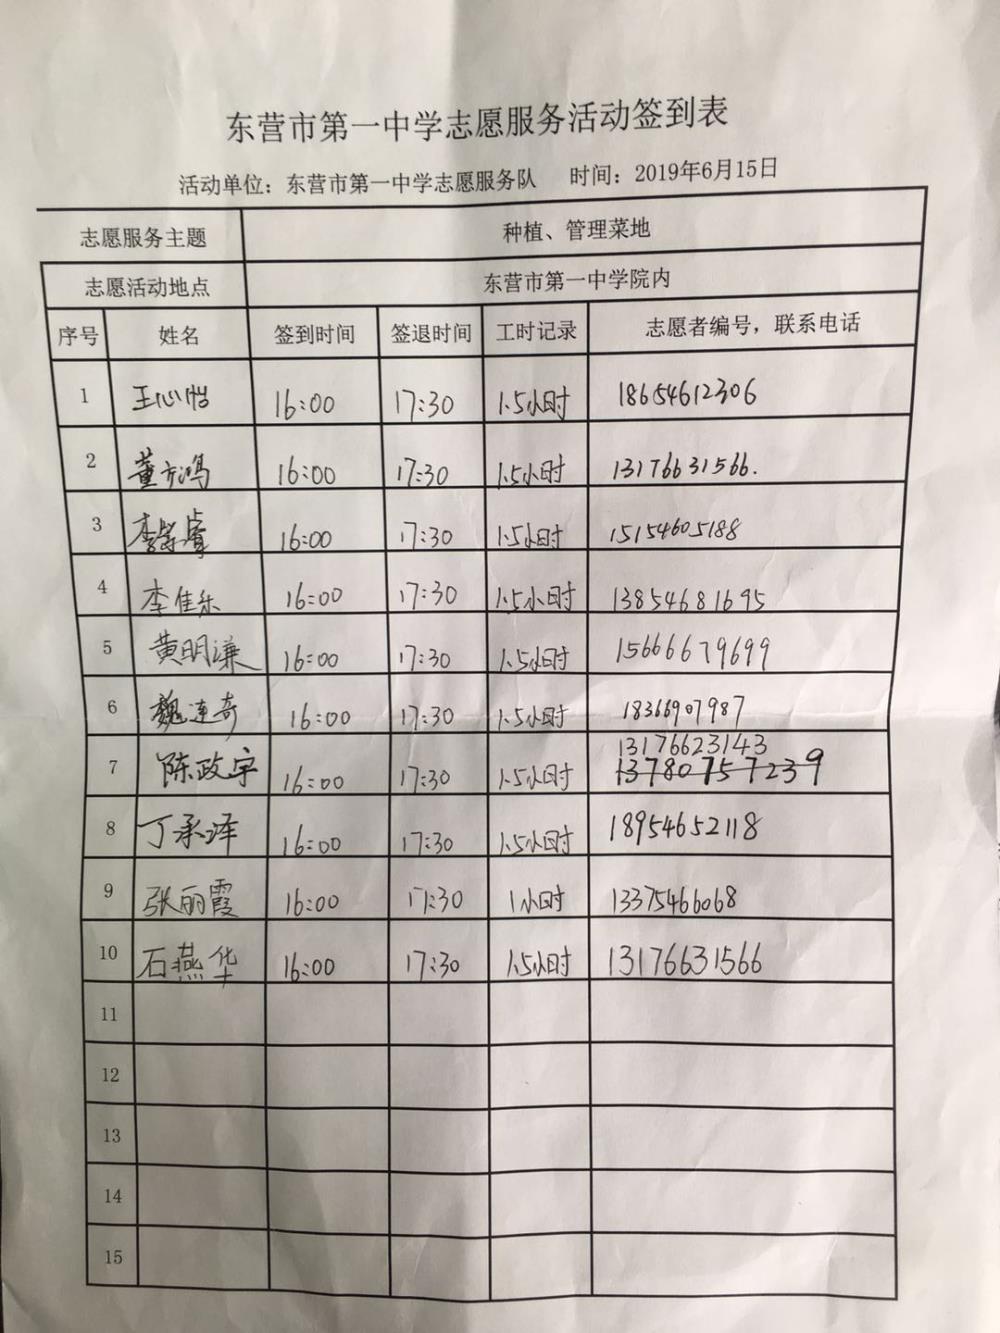 东营市第一中学志愿服务活动签到表
活动单位：东营市第一中学志愿服务队 时间：2019年6月15日
志愿服务主题 种植、管理菜地
志愿活动地点 东营市第一中学院内
序号 姓名 签到时间 签退时间 工时记录 志愿者编号，联系电话
1 王心怡 16:00 17:30 1.5小时 18654612306
2 董方鸿 16:00 17:30 1.5小时 13176631566.
3 李 16:00 17:30 1.5小时 15154605188
4 李佳乐 16:00 17:30 1.5小时 13854681695
5 黄明谦 16:00 17:30 1.5小时 15666679699
6 魏连奇 16:00 17:30 1.5小时 18366907987
13176623143
7 陈政宇 16:00 17:30 1.5小时 13780757239
8 丁承泽 16:00 17:30 1.5小时 18954652118
9 张丽霞 16:00 17:30 1小时 13375466068
10 石燕华 16:00 17:30 1.5小时 13176631566
11
12
13
14
15